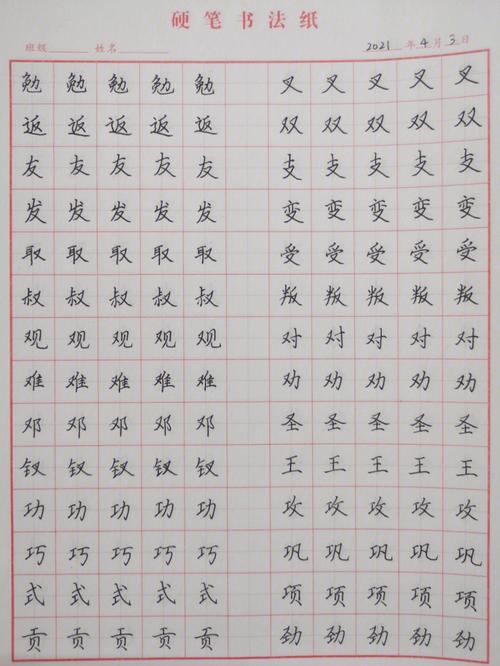 硬笔书法纸
班级 姓名 2021 年 4 月 3 日
勉 勉 勉 勉 勉 叉 叉 叉 叉 叉
返 返 返 返 返 双 双 双 双 双
友 友 友 友 友 支 支 支 支 支
发 发 发 发 发 变 变 变 变 变
取 取 取 取 取 受 受 受 受 受
叔 叔 叔 叔 叔 叛 叛 叛 叛 叛
观 观 观 观 观 对 对 对 对 对
难 难 难 难 难 劝 劝 劝 劝 劝
邓 邓 邓 邓 邓 圣 圣 圣 圣 圣
钗 钗 钗 钗 钗 王 王 王 王 王
功 功 功 功 功 攻 攻 攻 攻 攻
巧 巧 巧 巧 巧 巩 巩 巩 巩 巩
式 式 式 式 式 项 项 项 项 项
贡 贡 贡 贡 贡 劲 劲 劲 劲 劲